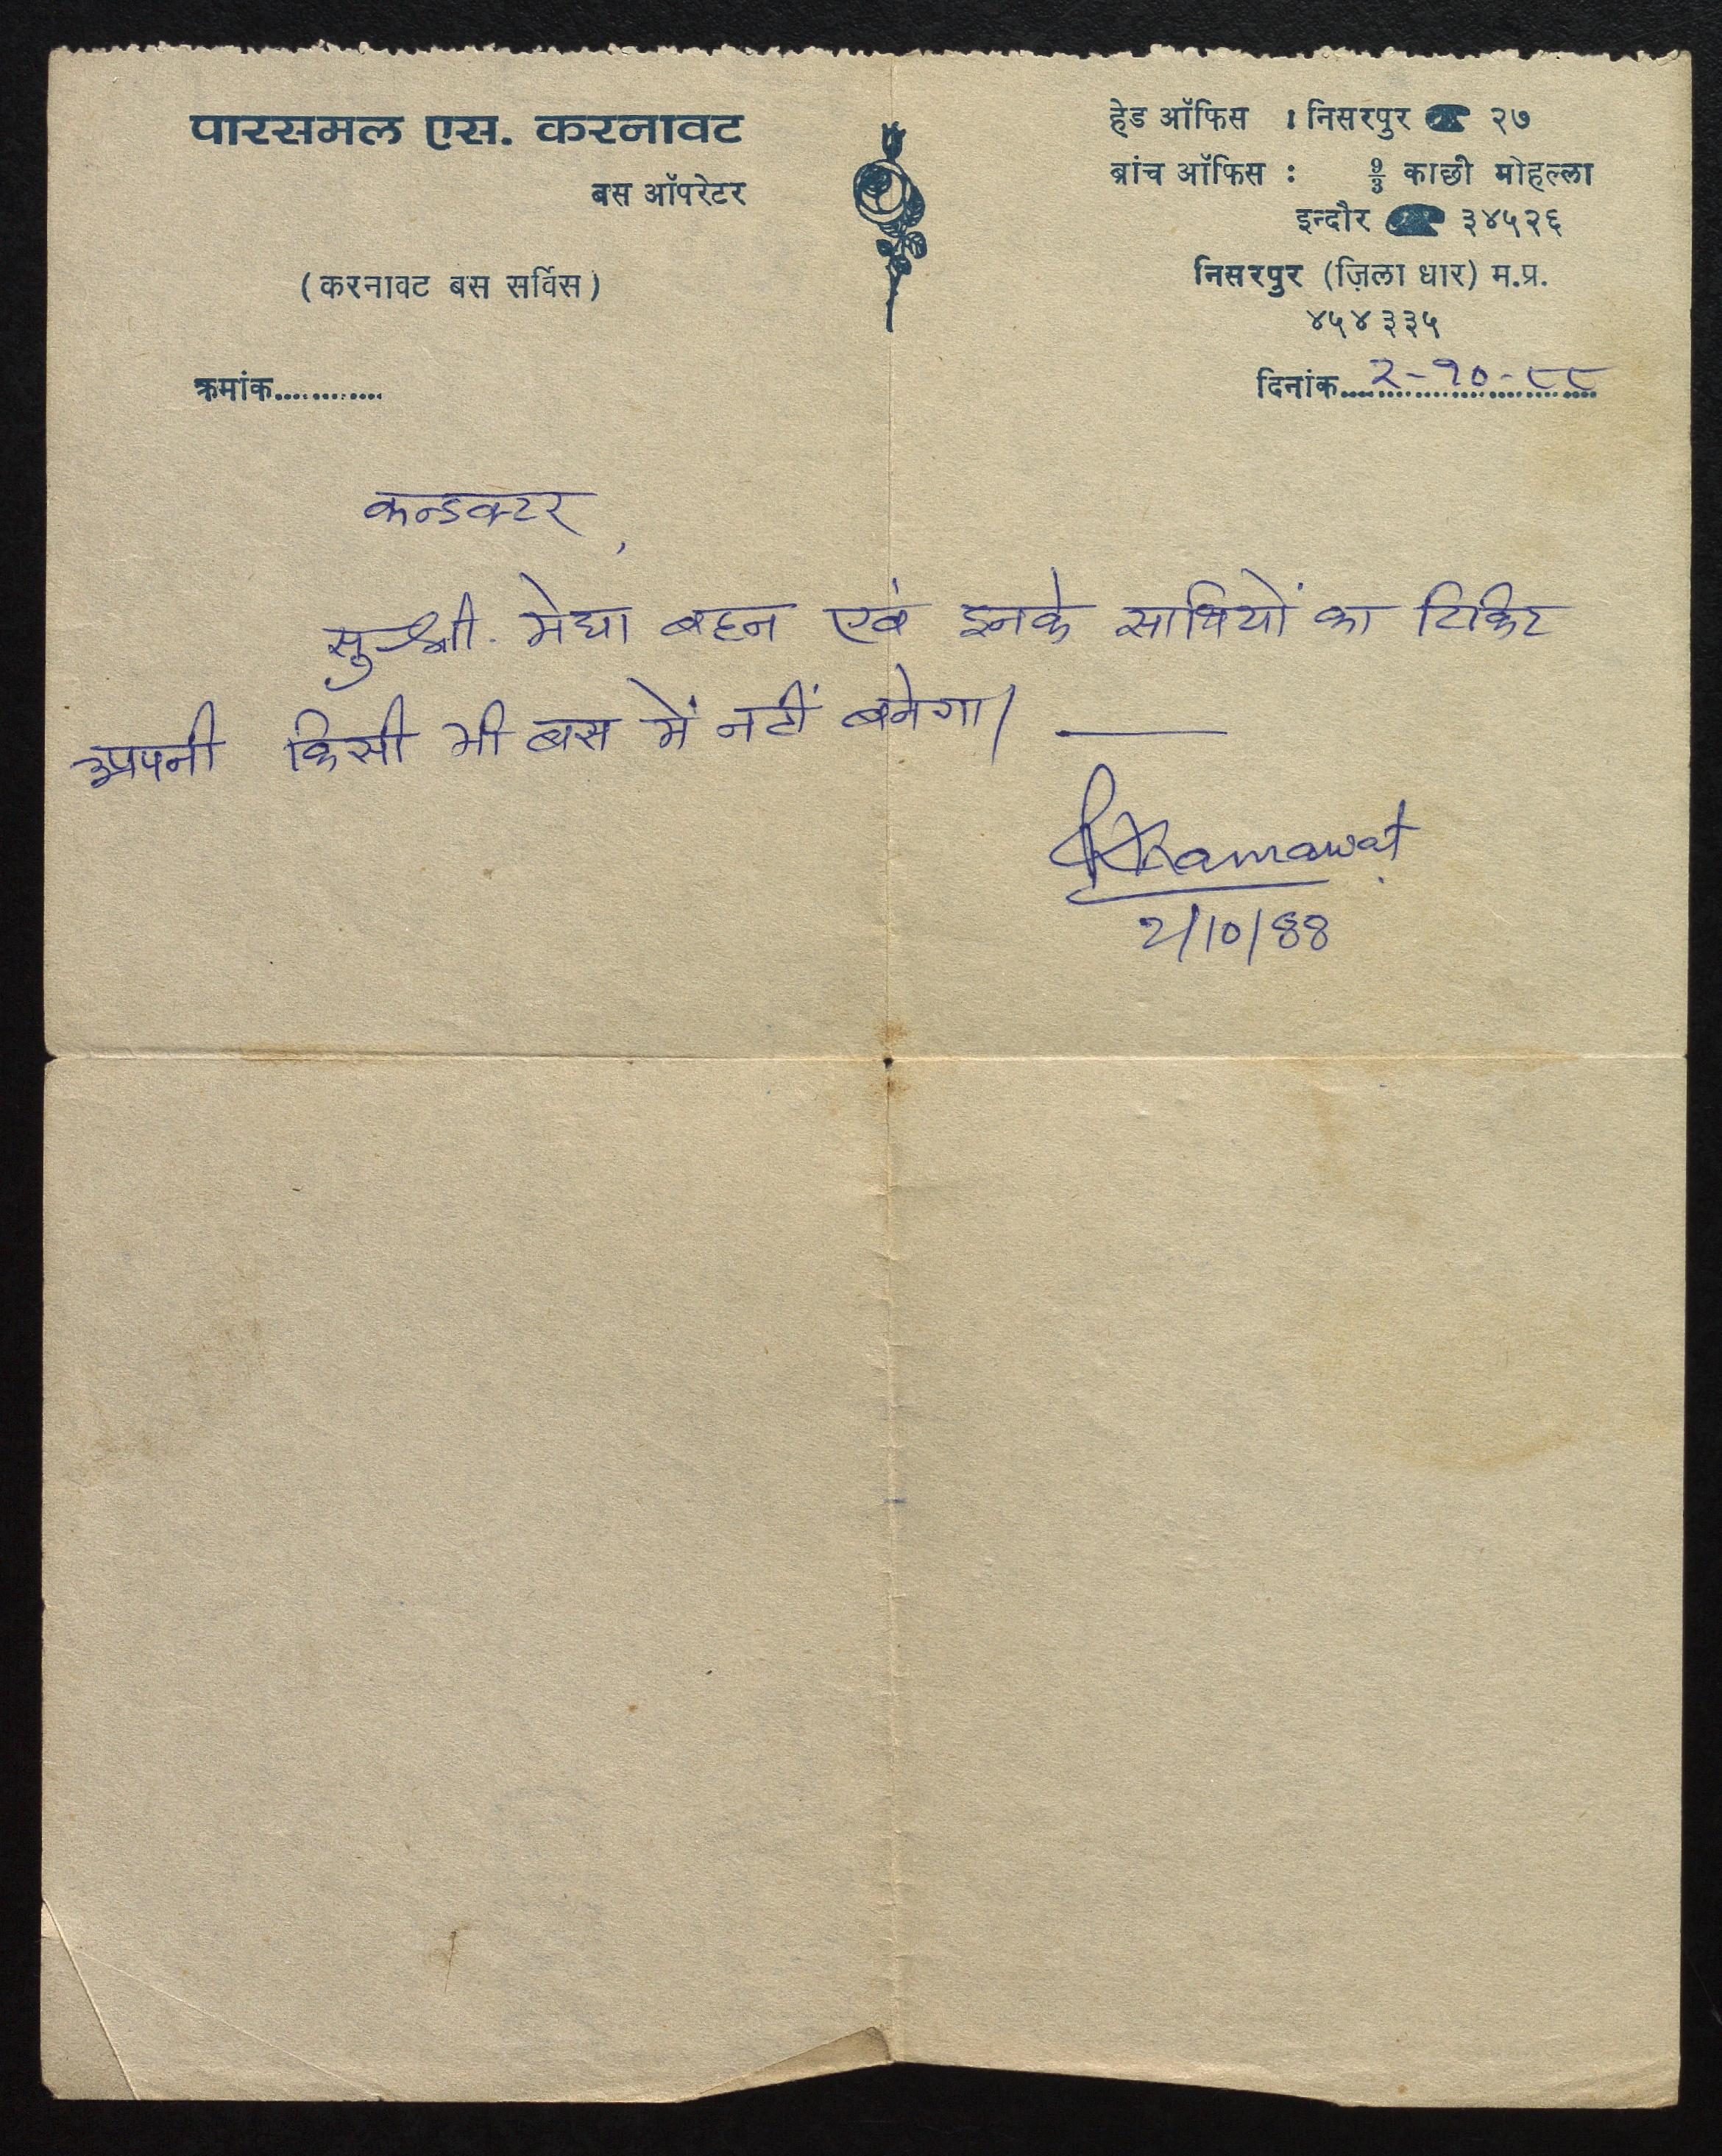 पारसमल एस. करनावट
बस ऑपरेटर
(करनावट बस सर्विस)
क्रमांक............
हेड ऑफिस : निसरपुर ☎ २७
ब्रांच ऑफिस : १/३ काछी मोहल्ला
इन्दौर ☎ ३४५२६
निसरपुर (ज़िला धार) म.प्र.
४५४ ३३५
दिनांक.... २-१०-८८
कन्डक्टर,
सुश्री. मेधा बहन एवं इनके साथियों का टिकिट
अपनी किसी भी बस में नहीं बनेगा।
PSKarnawat
2/10/88